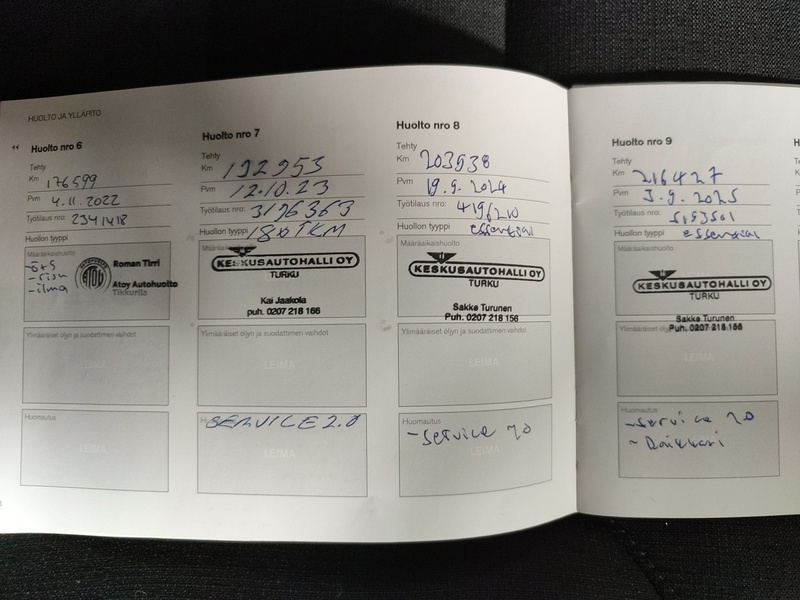 HUOLTO JA YLLÄPITO
Huolto nro 6
Tehty
Km 176599
Pvm 4.11.2022
Työtilaus nro: 2341418
Huollon tyyppi
Määräaikaishuolto
-ö+s
-risu
-ilma
ATOY
Roman Tirri
Atoy Autohuolto
Tikkurila
Ylimääräiset öljyn ja suodattimen vaihdot
LEIMA
Huomautus
LEIMA
Huolto nro 7
Tehty
Km 192953
Pvm 12.10.23
Työtilaus nro: 3196363
Huollon tyyppi 180TKM
Määräaikaishuolto
KESKUSAUTOHALLI OY
TURKU
Kai Jaakola
puh. 0207 218 166
Ylimääräiset öljyn ja suodattimen vaihdot
LEIMA
SERVICE 2.0
LEIMA
Huolto nro 8
Tehty
Km 203938
Pvm 19.9.2024
Työtilaus nro: 419620
Huollon tyyppi essential
Määräaikaishuolto
KESKUSAUTOHALLI OY
TURKU
Sakke Turunen
Puh. 0207 218 156
Ylimääräiset öljyn ja suodattimen vaihdot
LEIMA
Huomautus
-service 20
LEIMA
Huolto nro 9
Tehty
Km 216427
Pvm 3.9.2025
Työtilaus nro: 5193501
Huollon tyyppi essential
Määräaikaishuolto
KESKUSAUTOHALLI OY
TURKU
Sakke Turunen
Puh. 0207 218 156
Ylimääräiset öljyn ja suodattimen vaihdot
LEIMA
Huomautus
-service 20
LEIMA